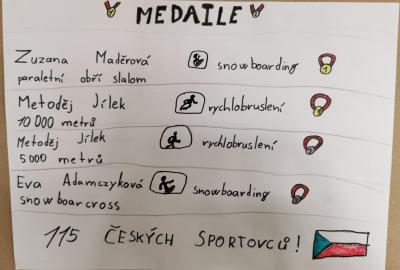 MEDAILE
Zuzana Maděrová snowboarding 1
paraletní obří slalom
Metoděj Jílek rychlobruslení 1
10 000 metrů
Metoděj Jílek rychlobruslení
5 000 metrů
Eva Adamczyková snowboarding
snowboarcross
115 ČESKÝCH SPORTOVCŮ!